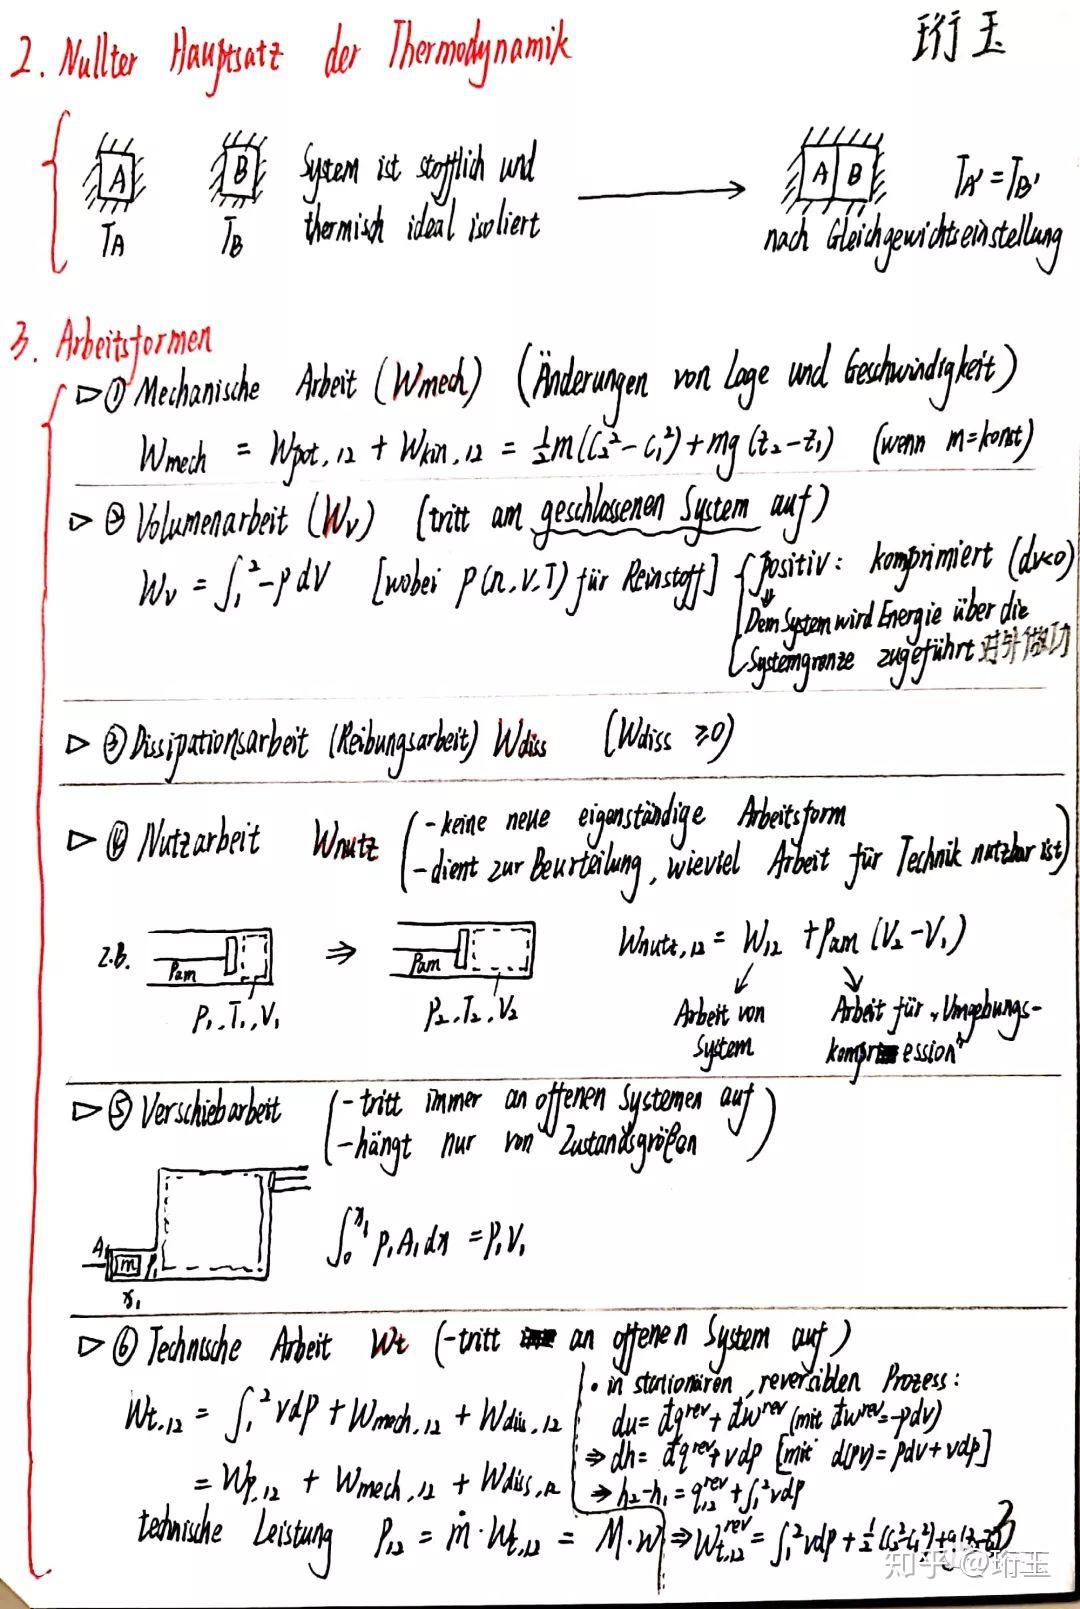 珩玉
2. Nullter Hauptsatz der Thermodynamik
A B System ist stofflich und A B T_A' = T_B'
T_A T_B thermisch ideal isoliert nach Gleichgewichtseinstellung
3. Arbeitsformen
▷ ① Mechanische Arbeit (Wmech) (Änderungen von Lage und Geschwindigkeit)
Wmech = Wpot,12 + Wkin,12 = ½m(c₂² - c₁²) + mg(z₂ - z₁) (wenn m=konst)
▷ ② Volumenarbeit (Wv) (tritt am geschlossenen System auf)
Wv = ∫₁² -p dV [wobei p(n,V,T) für Reinstoff] { positiv: komprimiert (dv<0)
Dem System wird Energie über die
Systemgrenze zugeführt 对外做功
▷ ③ Dissipationsarbeit (Reibungsarbeit) Wdiss (Wdiss ≥ 0)
▷ ④ Nutzarbeit Wnutz (-keine neue eigenständige Arbeitsform
-dient zur Beurteilung, wieviel Arbeit für Technik nutzbar ist)
z.B. Pam ⇒ Pam Wnutz,12 = W12 + Pam (V₂ - V₁)
P₁, T₁, V₁ P₂, T₂, V₂ Arbeit von System Arbeit für „Umgebungs-
kompression“
▷ ⑤ Verschiebarbeit (-tritt immer an offenen Systemen auf
-hängt nur von Zustandsgrößen)
A₁ m P₁ ∫₀^x₁ p₁A₁dx = P₁V₁
x₁
▷ ⑥ Technische Arbeit Wt (-tritt an offenen System auf)
Wt,12 = ∫₁² vdp + Wmech,12 + Wdiss,12
= Wp,12 + Wmech,12 + Wdiss,12
• in stationären, reversiblen Prozess:
du = đq^rev + đw^rev (mit đw^rev = -pdv)
⇒ dh = đq^rev + vdp [mit d(pv) = pdv + vdp]
⇒ h₂ - h₁ = q₁₂^rev + ∫₁² vdp
technische Leistung P₁₂ = ṁ·Wt,12 = M·w ⇒ Wt,12^rev = ∫₁² vdp + ½(c₂² - c₁²) + g(z₂ - z₁)
3
知乎 @珩玉